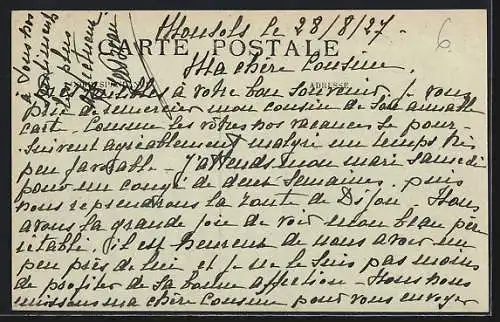 Monsols le 28/8/27.
CARTE POSTALE
Ma chère Cousine,
CORRESPONDANCE
ADRESSE
sensibles à votre bon souvenir, je vous
prie de remercier mon cousin de son aimable
carte. Comme les vôtres nos vacances se pour-
suivent agréablement malgré un temps très
peu favorable. J'attends mon mari samedi
pour un congé de deux semaines, puis
nous reprendrons la route de Dijon. Nous
avons la grande joie de voir mon beau père
rétabli. Il est heureux de nous avoir un
peu près de lui et je ne le suis pas moins
de profiter de sa bonne affection. Nous nous
unissons ma chère Cousine pour vous envoyer
à tous nos
sentiments
les plus
affectueux.
6